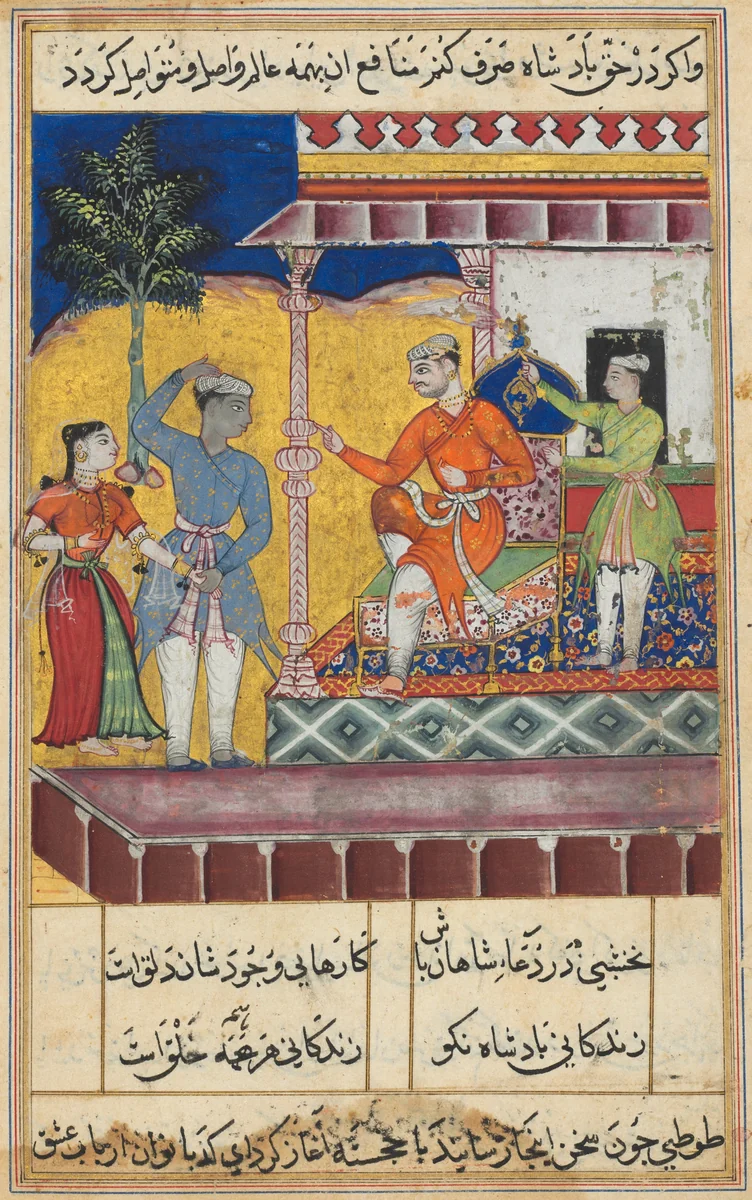 واکر در حق باد شاه صرف کنم منافع ان بهمه عالم واصل و متواصل کردد
نخشبی در دعاء شاهان باش
کارهایی وجود شان دلق است
زندکانی باد شاه نکو
زندکانی همه خلق است
طوطی چون سخن اینجا رسانید با خجسته آغاز کرد ای کدبانوان ارباب عشق